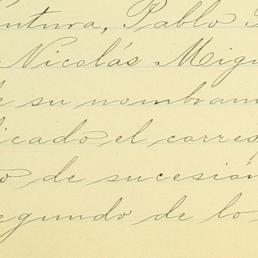 ntura, Pablo
Nicolás Migu
e su nombram
licado el corres
o de sucesión
segundo de lo